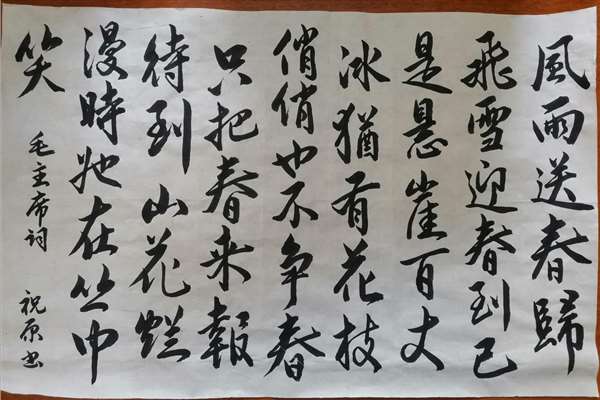 風雨送春歸
飛雪迎春到已
是悬崖百丈
冰猶有花枝
俏俏也不争春
只把春来報
待到山花爛
漫時她在丛中
笑
毛主席词 祝原书